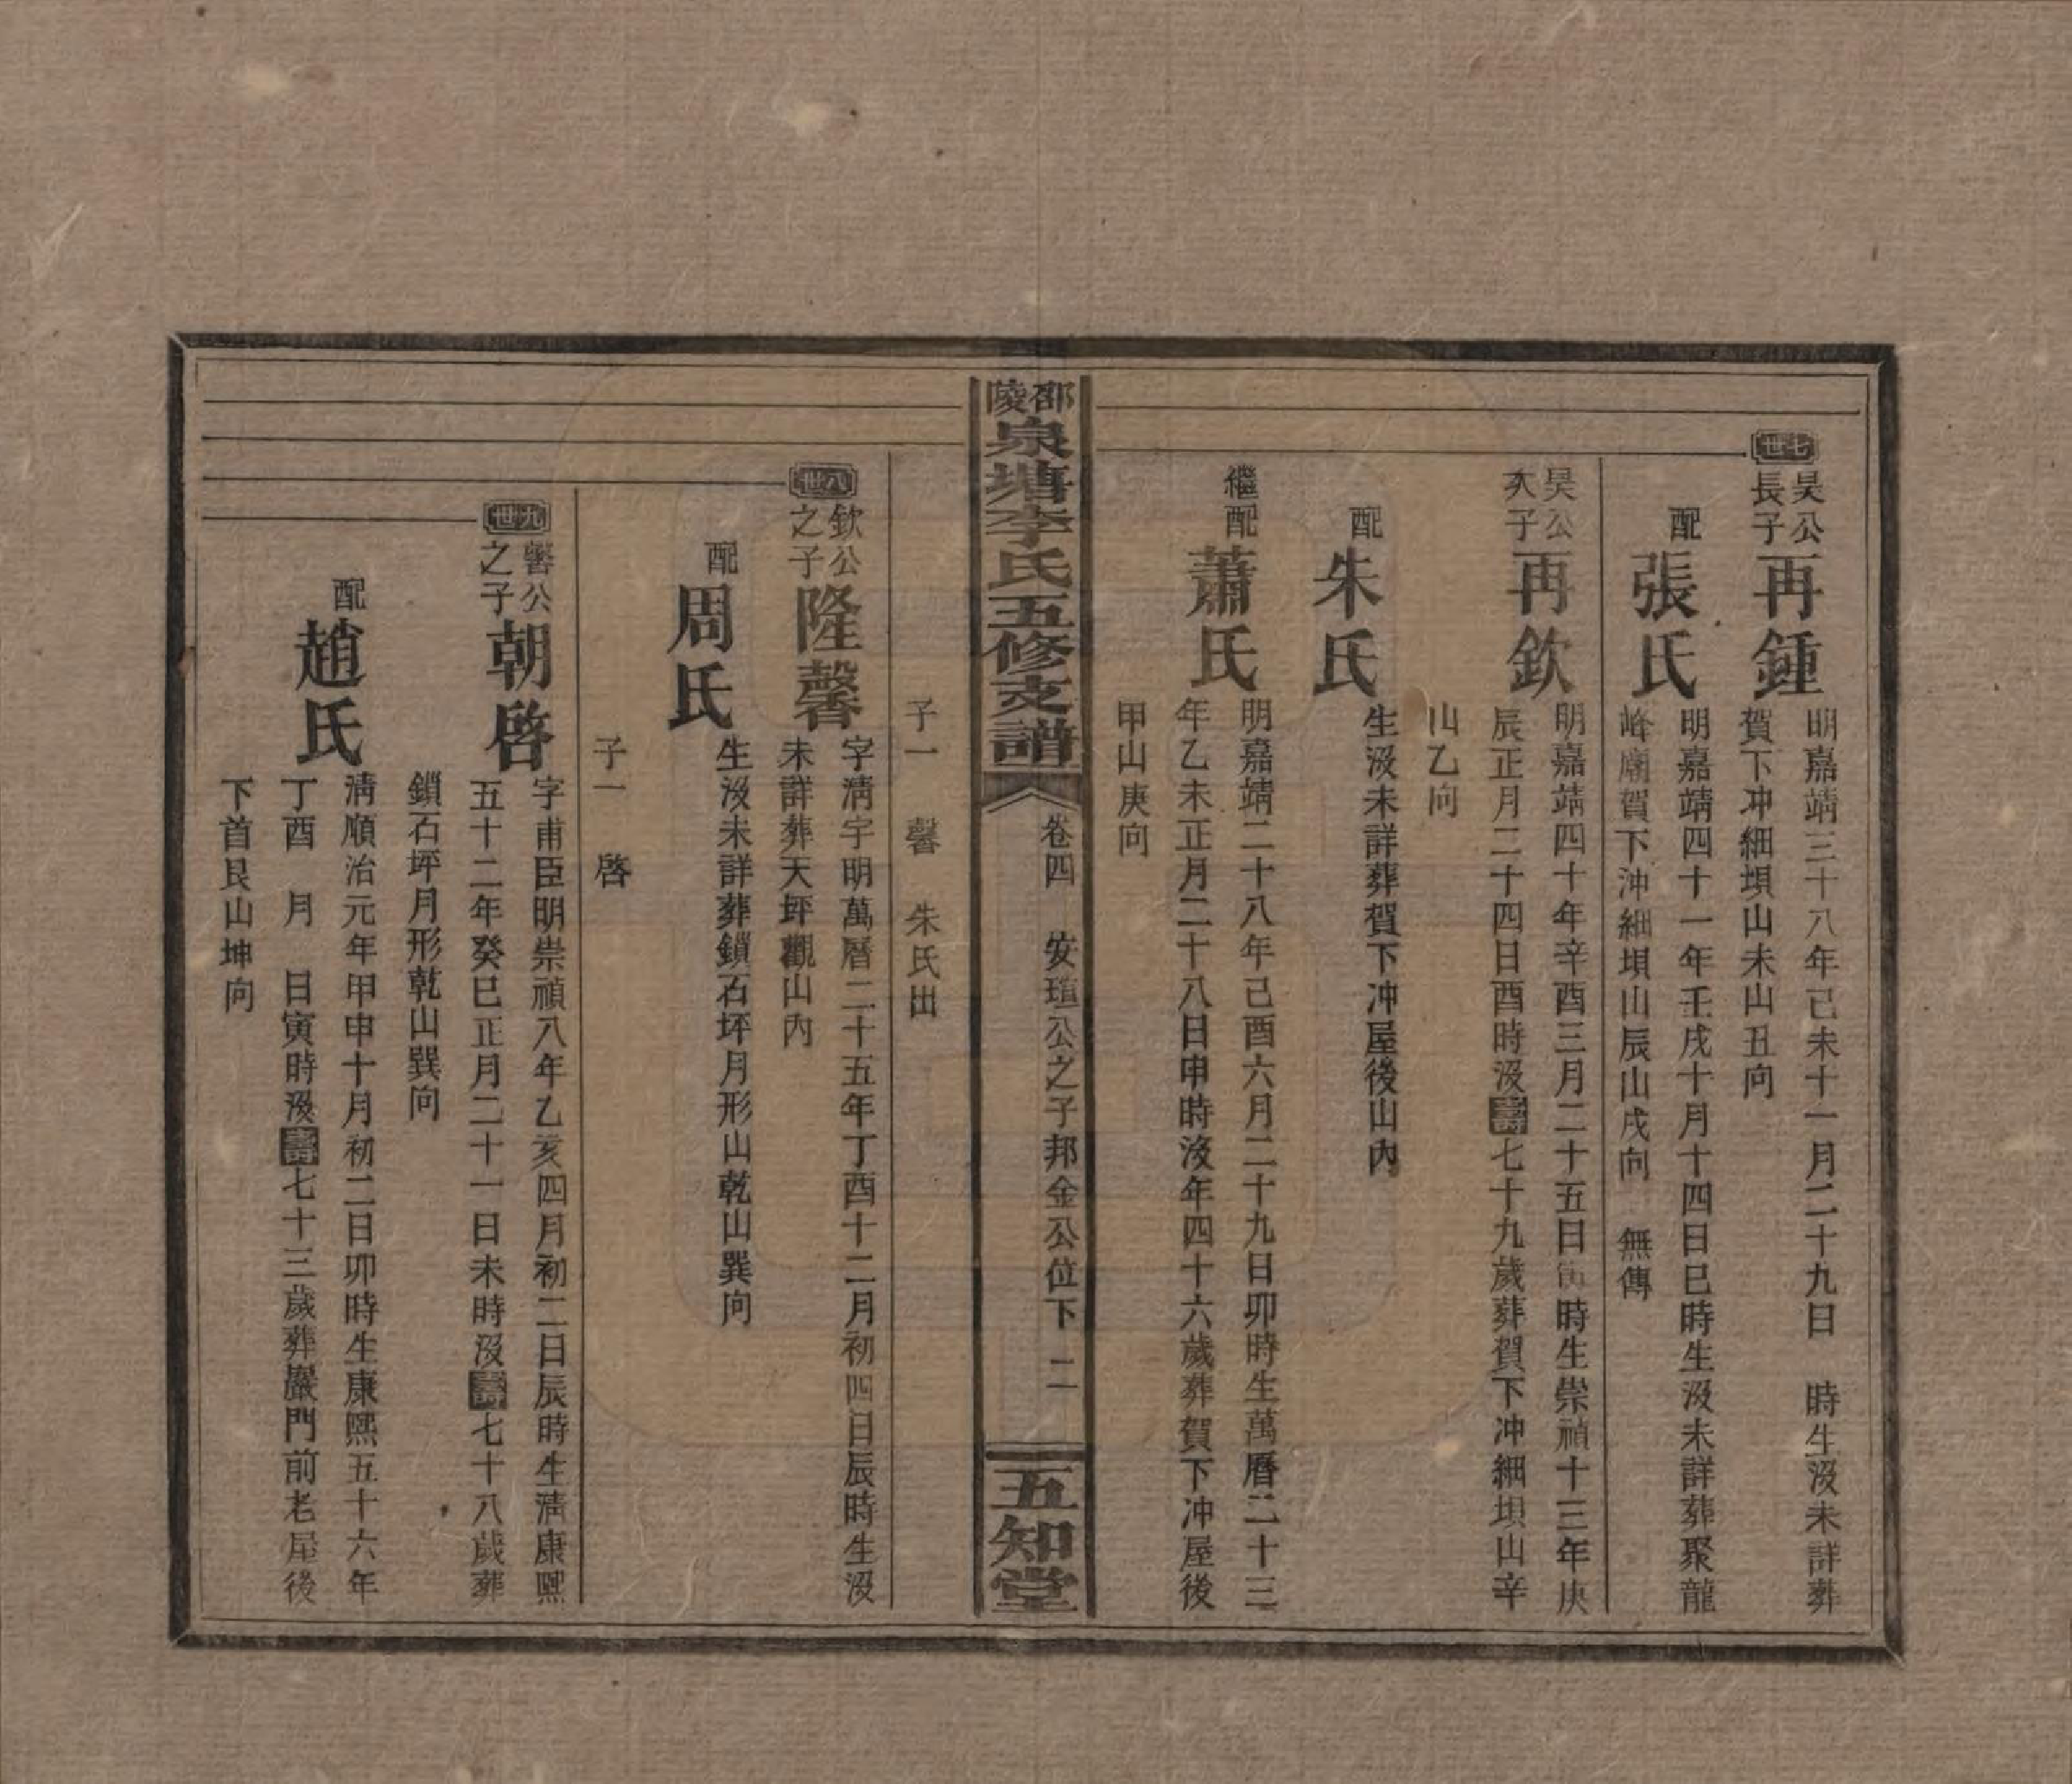 七世
昊公長子
再鍾
明嘉靖三十八年己未十一月二十九日 時生沒未詳葬
賀下冲細垻山未山丑向
配
張氏
明嘉靖四十一年壬戌十月十四日巳時生沒未詳葬聚龍
峰廟賀下沖細垻山辰山戌向 無傳
昊公次子
再欽
明嘉靖四十年辛酉三月二十五日寅時生崇禎十三年庚
辰正月二十四日酉時沒壽七十九歲葬賀下冲細垻山辛
山乙向
配
朱氏
生沒未詳葬賀下冲屋後山內
繼配
蕭氏
明嘉靖二十八年己酉六月二十九日卯時生萬曆二十三
年乙未正月二十八日申時沒年四十六歲葬賀下冲屋後
甲山庚向
邵陵
泉塘李氏五修支譜
卷四 安瑄公之子邦金公位下 二
五知堂
子一 馨 朱氏出
八世
欽公之子
隆馨
字清宇明萬曆二十五年丁酉十二月初四日辰時生沒
未詳葬天坪觀山內
配
周氏
生沒未詳葬鎖石坪月形山乾山巽向
子一 啓
九世
馨公之子
朝啓
字甫臣明崇禎八年乙亥四月初二日辰時生清康熙
五十二年癸巳正月二十一日未時沒壽七十八歲葬
鎖石坪月形乾山巽向
配
趙氏
清順治元年甲申十月初二日卯時生康熙五十六年
丁酉 月 日寅時沒壽七十三歲葬巖門前老屋後
下首艮山坤向